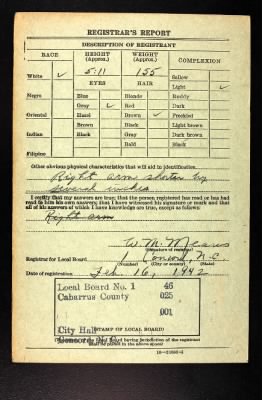 REGISTRAR'S REPORT
DESCRIPTION OF REGISTRANT
RACE HEIGHT (Approx.) WEIGHT (Approx.) COMPLEXION
White ✓ 5:11 155 Sallow
EYES HAIR Light ✓
Negro Blue Blonde Ruddy
Gray ✓ Red Dark
Oriental Hazel Brown ✓ Freckled
Brown Black Light brown
Indian Black Gray Dark brown
Bald Black
Filipino
Other obvious physical characteristics that will aid in identification
Right arm shorter by
several inches
I certify that my answers are true; that the person registered has read or has had
read to him his own answers; that I have witnessed his signature or mark and that
all of his answers of which I have knowledge are true, except as follows:
Right arm
W. M. Mears
(Signature of registrar)
Registrar for Local Board Concord, N.C.
(Number) (City or county) (State)
Date of registration Feb. 16, 1942
Local Board No. 1 46
Cabarrus County 025
001
City Hall
(STAMP OF LOCAL BOARD)
Concord, N. C.
Local Board having jurisdiction of the registrant
shall be placed in the above space)